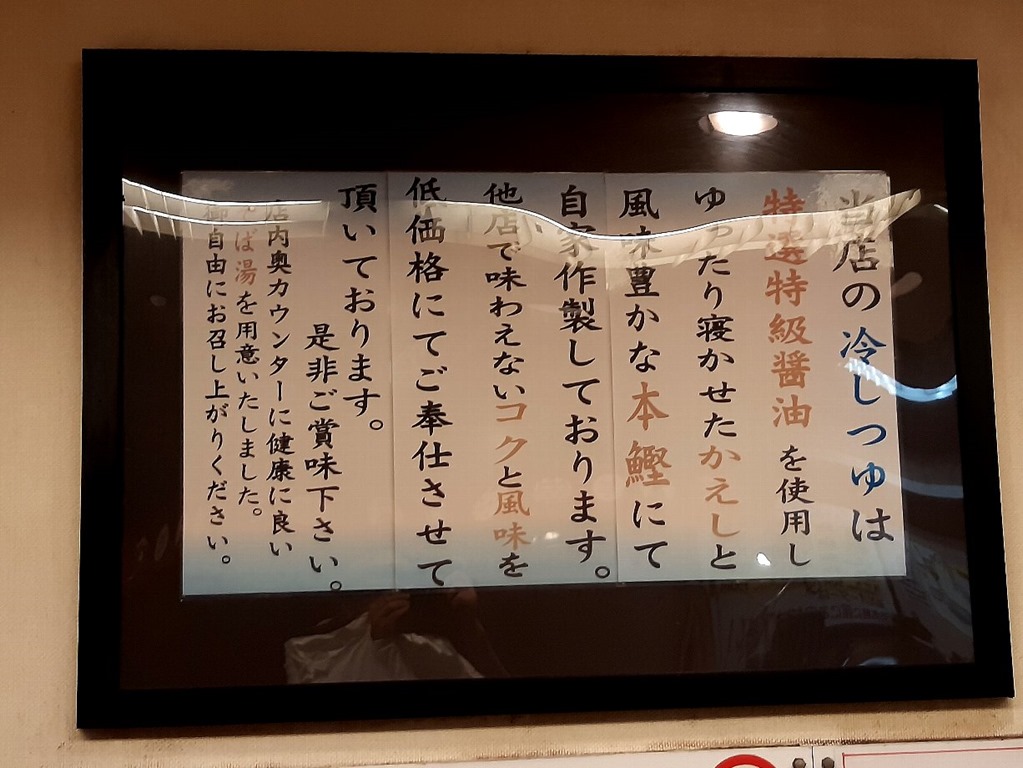 当店の冷しつゆは
特選特級醤油を使用し
ゆったり寝かせたかえしと
風味豊かな本鰹にて
自家作製しております。
他店で味わえないコクと風味を
低価格にてご奉仕させて
頂いております。
是非ご賞味下さい。
店内奥カウンターに健康に良い
そば湯を用意いたしました。
御自由にお召し上がりください。